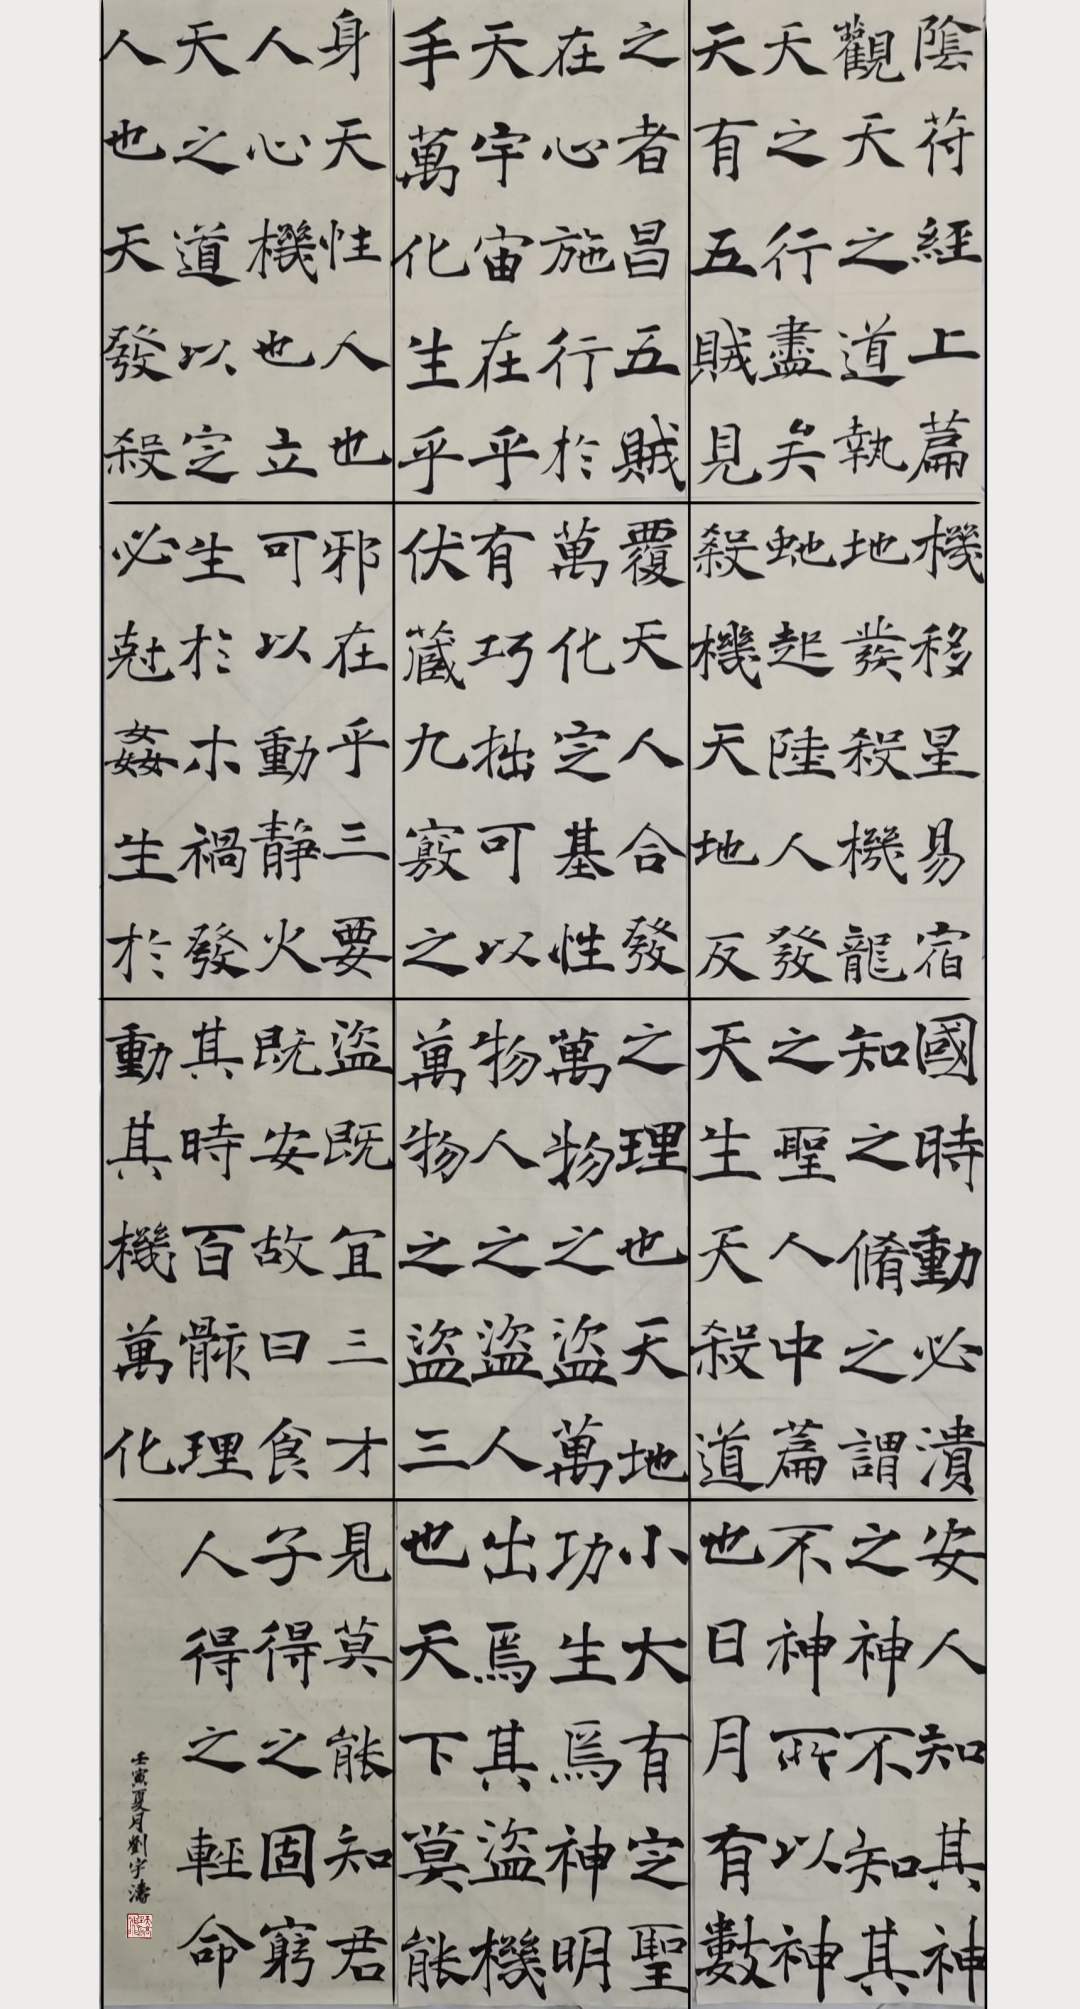 陰符經上篇
觀天之道執
天之行盡矣
天有五賊見
之者昌五賊
在心施行於
天宇宙在乎
手萬化生乎
身天性人也
人心機也立
天之道以定
人也天發殺
機移星易宿
地發殺機龍
虵起陸人發
殺機天地反
覆天人合發
萬化定基性
有巧拙可以
伏藏九竅之
邪在乎三要
可以動靜火
生於木禍發
必尅姦生於
國時動必潰
知之脩之謂
之聖人中篇
天生天殺道
之理也天地
萬物之盜萬
物人之盜人
萬物之盜三
盜既宜三才
既安故曰食
其時百骸理
動其機萬化
安人知其神
之神不知其
不神所以神
也日月有數
小大有定聖
功生焉神明
出焉其盜機
也天下莫能
見莫能知君
子得之固窮
人得之輕命
壬寅夏月劉宇濤